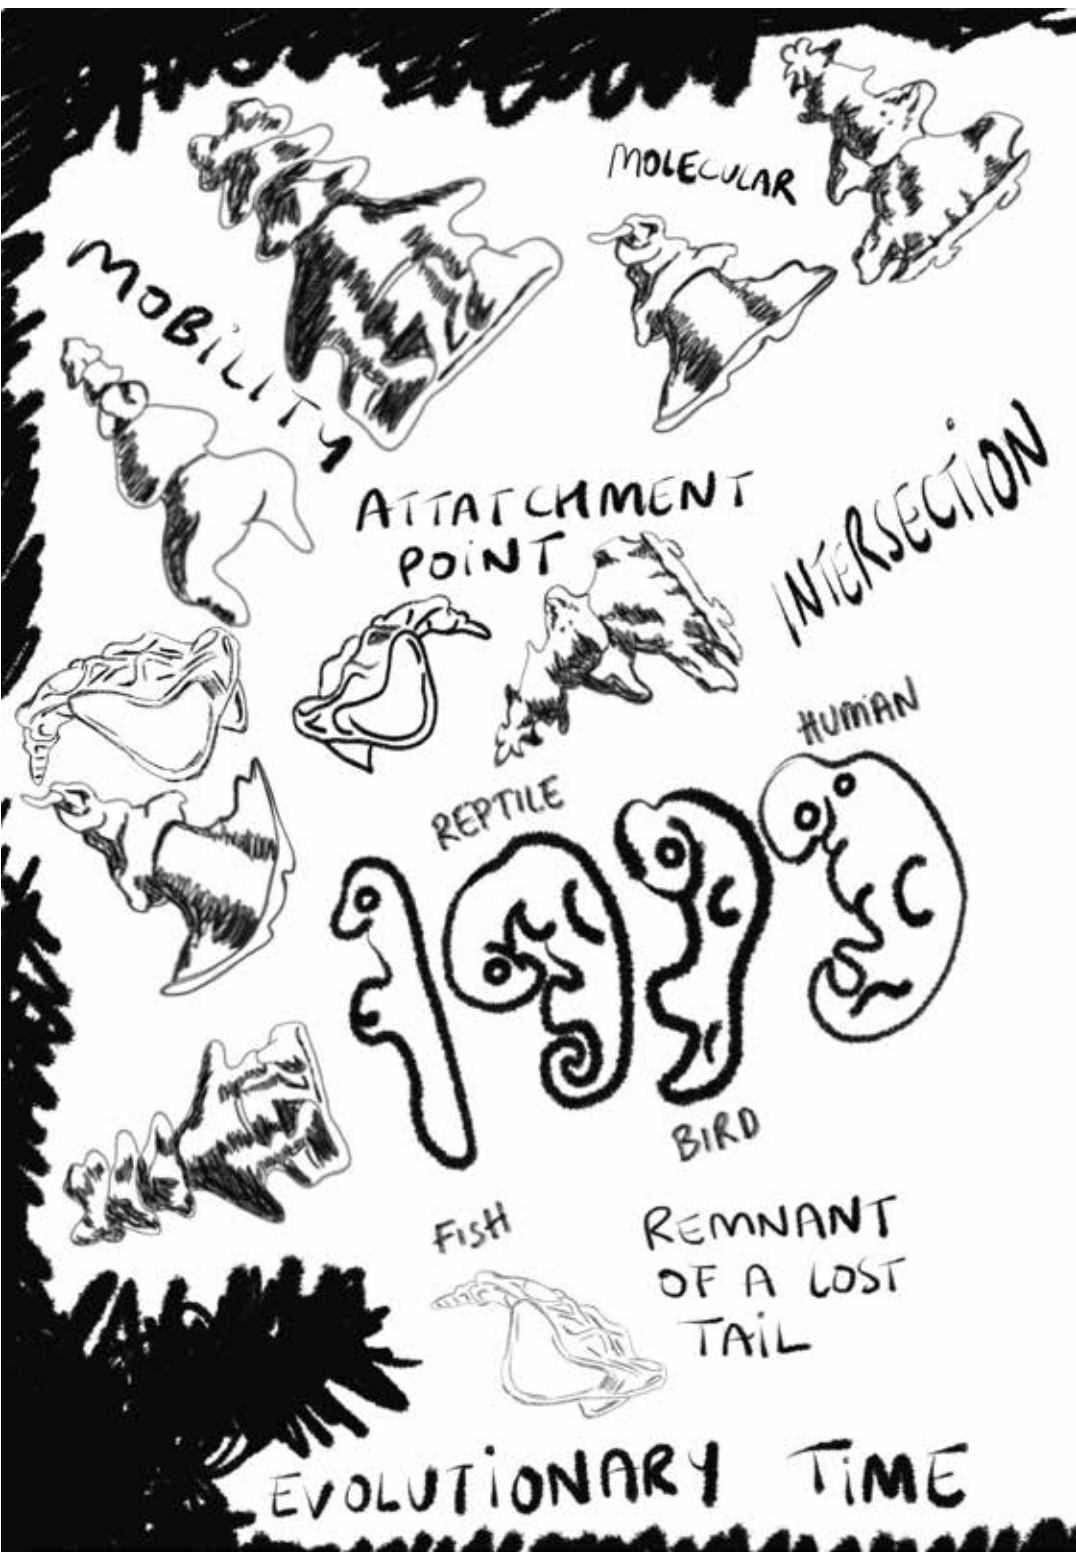 MOLECULAR
MOBiLITY
ATTATCHMENT
POiNT
INTERSECTiON
HUMAN
REPTILE
BIRD
FisH
REMNANT
OF A LOST
TAiL
EVOLUTiONARY TiME